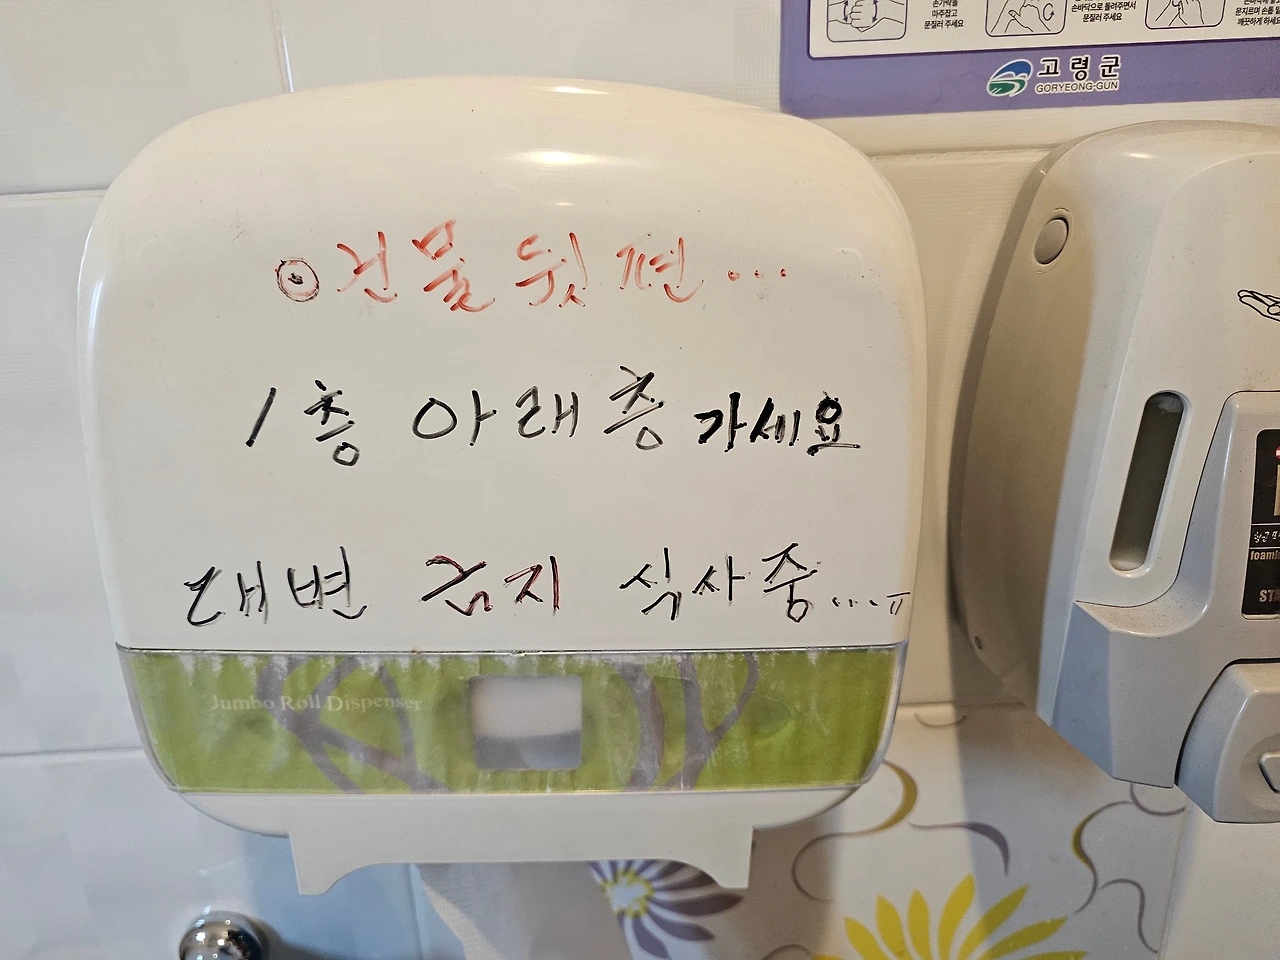 손가락을
마주잡고
문질러 주세요
손바닥으로 돌려주면서
문질러 주세요
문지르며 손톱 밑
깨끗하게 하세요
고령군
GORYEONG-GUN
⊙건물 뒷편...
1층 아래층 가세요
대변 금지 식사중...ㅠ
Jumbo Roll Dispenser